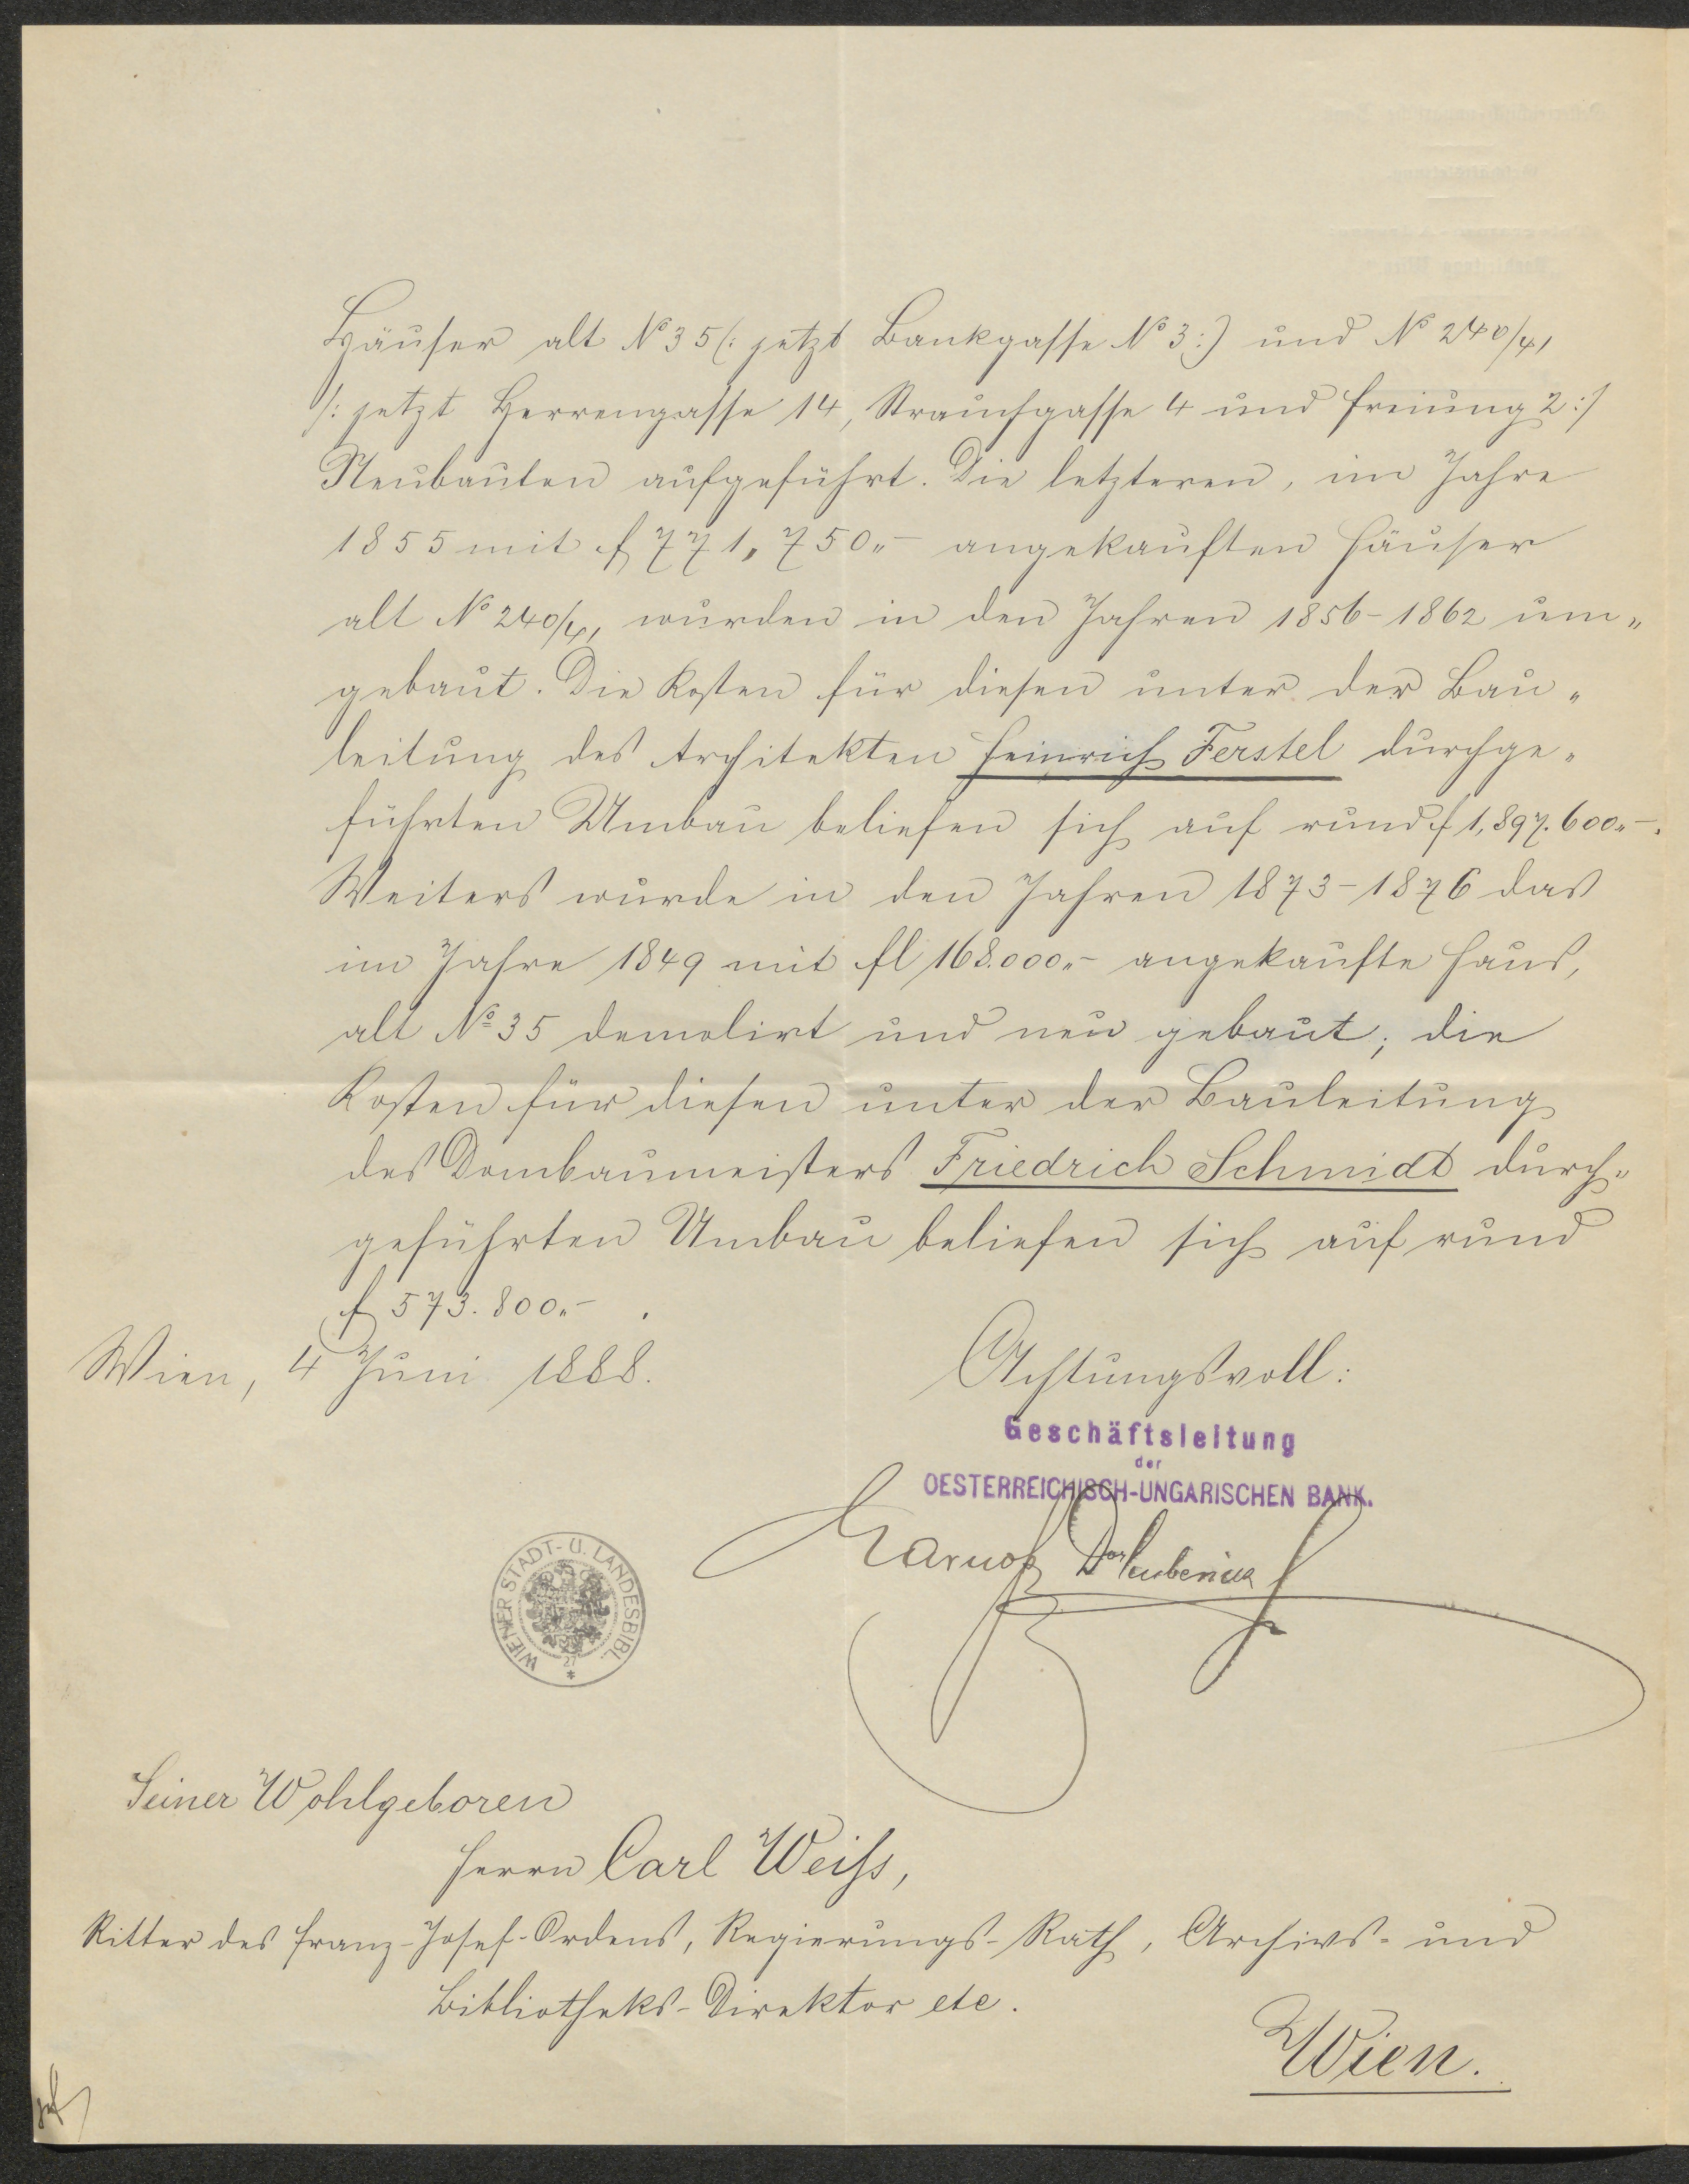 Häuser alt No 35 (: jetzt Bankgasse No 3 :) und No 240/41
/: jetzt Herrengasse 14, Strauchgasse 4 und Freiung 2 :/
Neubauten aufgeführt. Die letzteren, im Jahre
1855 mit f 771,750„- angekauften Häuser
alt No 240/41, wurden in den Jahren 1856-1862 um„
gebaut. Die Kosten für diesen unter der Bau„
leitung des Architekten Heinrich Ferstel durchge„
führten Umbau beliefen sich auf rund f 1,897.600„-.
Weiters wurde in den Jahren 1873-1876 das
im Jahre 1849 mit fl 168.000„- angekaufte Haus,
alt No 35 demolirt und neu gebaut; die
Kosten für diesen unter der Bauleitung
des Dombaumeisters Friedrich Schmidt durch„
geführten Umbau beliefen sich auf rund
f 573.800„- .
Wien, 4 Juni 1888.
Achtungsvoll:
Geschäftsleitung
der
OESTERREICHISCH-UNGARISCHEN BANK.
WIENER STADT- U. LANDESBIBL.
27
Seiner Wohlgeboren
Herrn Carl Weiss,
Ritter des Franz-Josef-Ordens, Regierungs-Rath, Archivs- und
Bibliotheks-Direktor etc.
Wien.